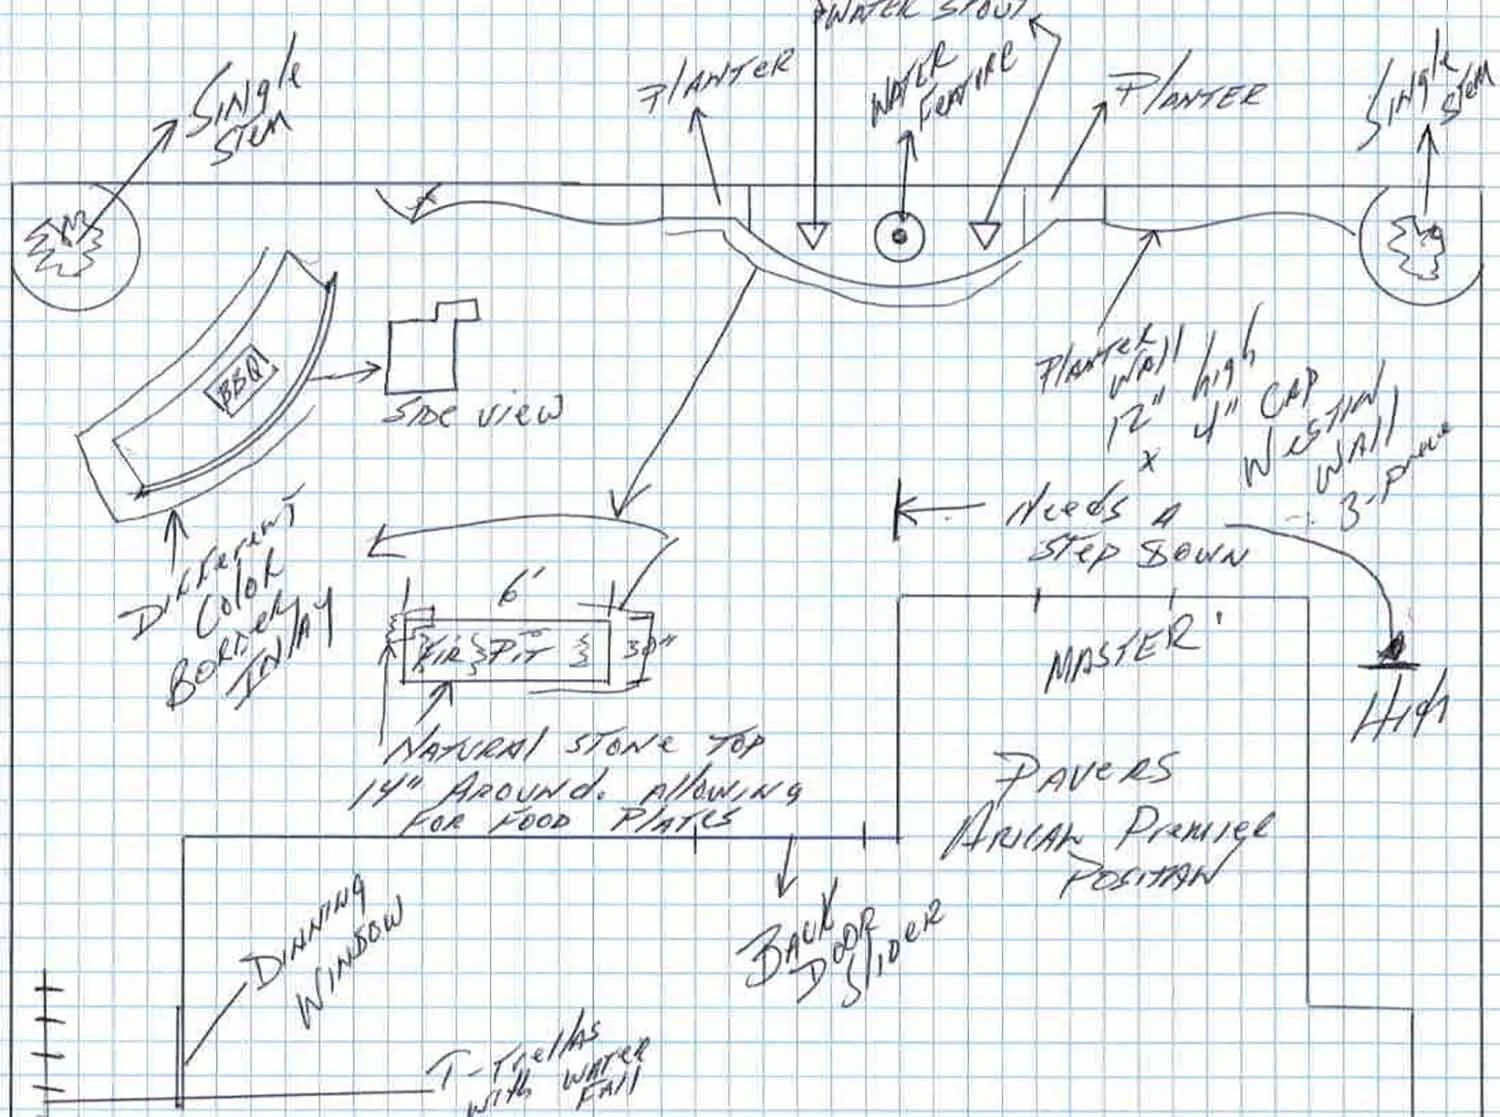 WATER SPOUT
PLANTER
WATER
FEATURE
PLANTER
SINGLE
STEM
SINGLE
STEM
BBQ
SIDE VIEW
PLANTER
WALL
12" HIGH
x 4" CAP
WESTIN
WALL
3-piece
NEEDS A
STEP DOWN
HIGH
DIFFERENT
COLOR
BORDER
INLAY
6'
FIRE PIT
30"
NATURAL STONE TOP
14" AROUND. ALLOWING
FOR FOOD PLATES
MASTER
PAVERS
Premier
DINNING
WINDOW
BACK
DOOR
SLIDER
T-Trellas
with WATER
FALL